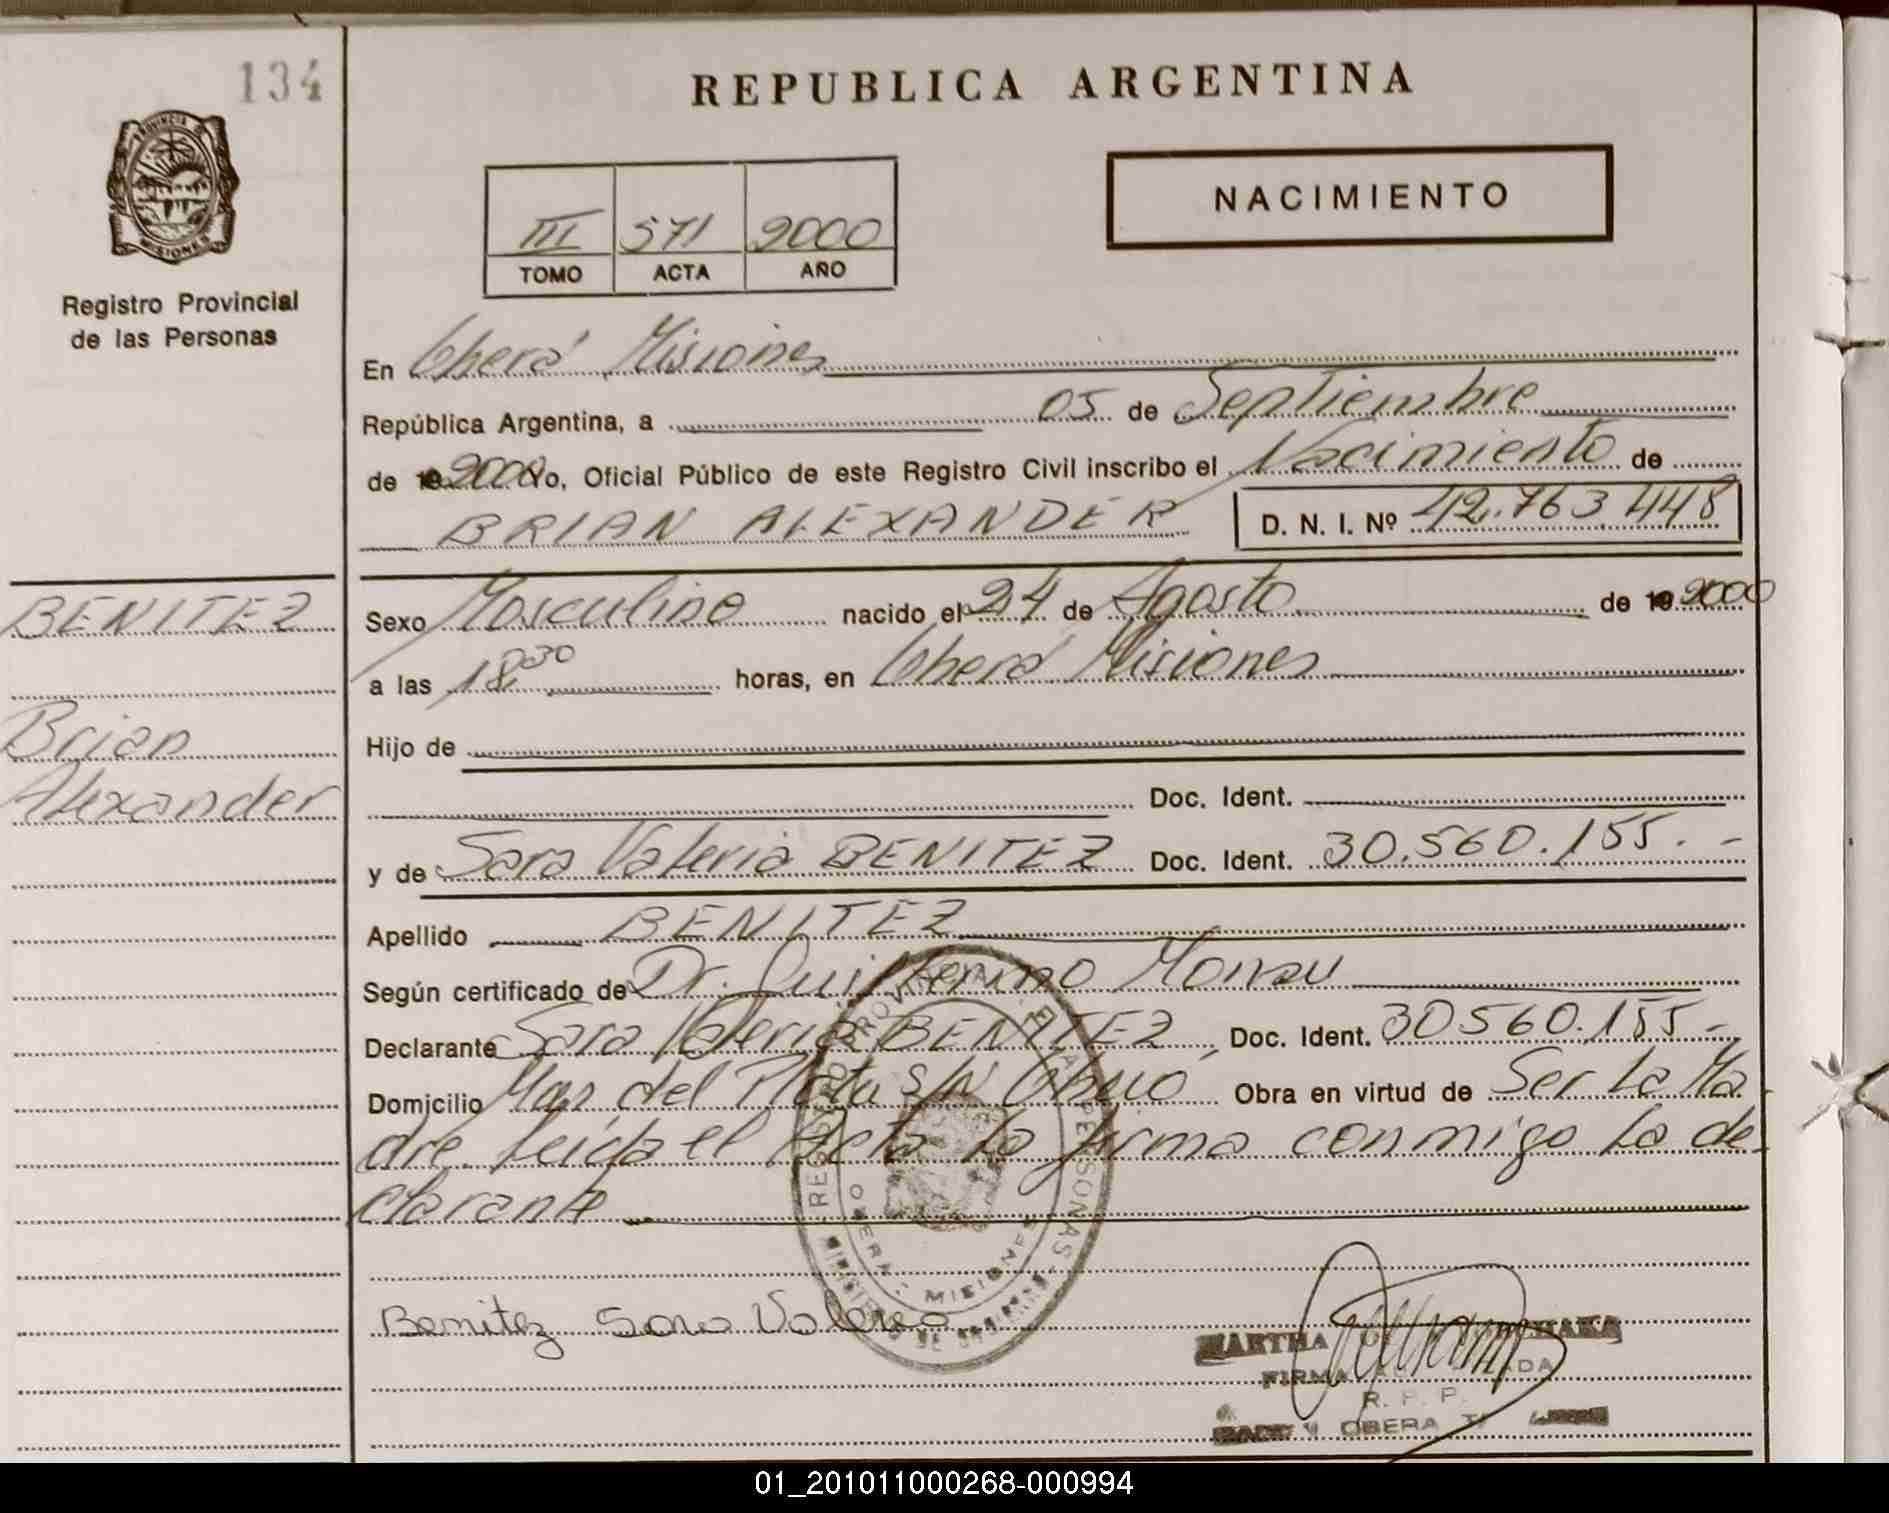 134
REPUBLICA ARGENTINA
PROVINCIA DE
MISIONES
Registro Provincial
de las Personas
III 571 2000
TOMO ACTA AÑO
NACIMIENTO
En Oberá Misiones
República Argentina, a 05 de Septiembre
de 19 2000 Yo, Oficial Público de este Registro Civil inscribo el Nacimiento de
BRIAN ALEXANDER D. N. I. Nº 42.763.448
BENITEZ
Brian
Alexander
Sexo Masculino nacido el 24 de Agosto de 19 2000
a las 18,30 horas, en Oberá Misiones
Hijo de
Doc. Ident.
y de Sara Valeria BENITEZ Doc. Ident. 30.560.155.-
Apellido BENITEZ
Según certificado de Dr. Guillermo
Declarante Sara Valeria BENITEZ, Doc. Ident. 30560.155-
Domicilio Mar del Plata S/N Oberá Obra en virtud de Ser La Ma
dre. Leida el Acta la firma conmigo La de-
clarante
REGISTRO PROVINCIAL DE LAS PERSONAS
OBERA - MISIONES
MINISTERIO DE GOBIERNO
Benitez Sara Valeria
MARTHA
FIRMA
R. P. P.
OBERA
01_201011000268-000994